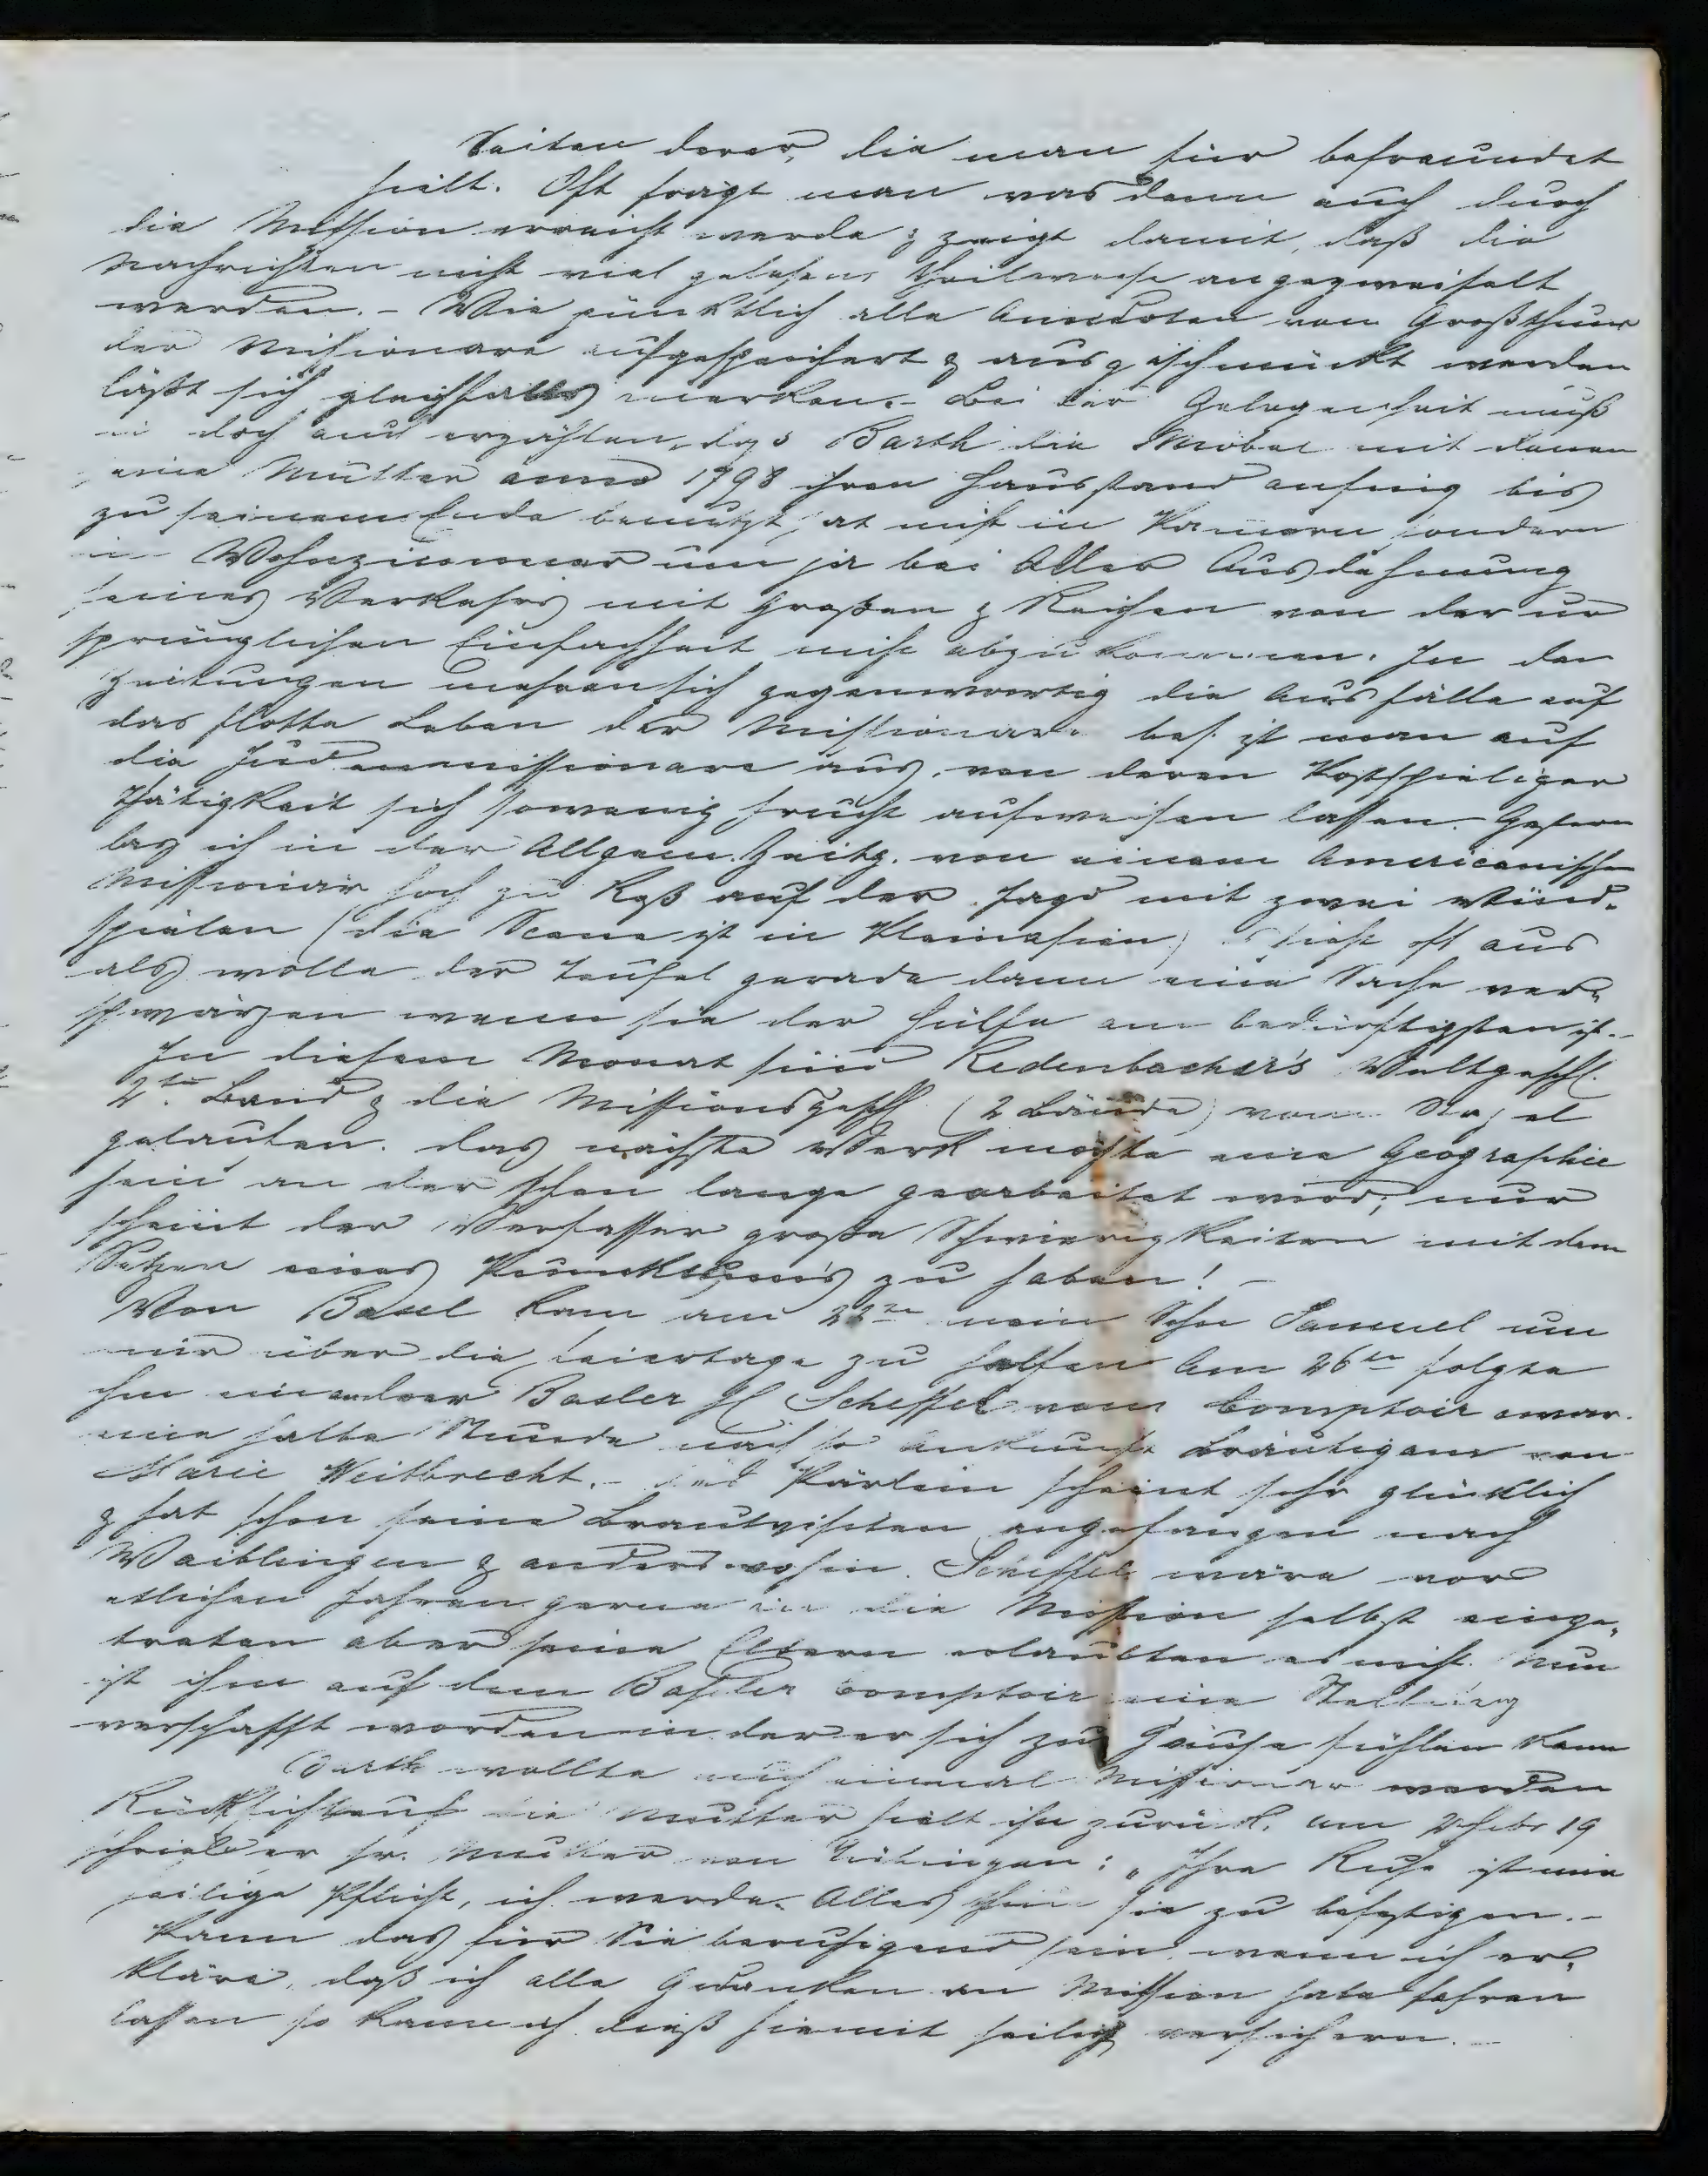 Seiten derer, die man für befreundet
hielt. Oft fragt man was denn auch durch
die Mission erreicht werde & zeigt damit, daß die
Nachrichten nicht viel gelesen, theilweise angezweifelt
werden. - Wie pünktlich alle Anecdoten vom Großthun
der Missionare aufgespeichert & ausgeschmückt werden
läßt sich gleichfalls merken. - Bei der Gelegenheit muß
doch auch erzählen, dass Barth die Möbel mit denen
seine Mutter anno 1798 ihren Hausstand anfing bis
zu seinem Ende benutzt hat nicht in Kamern sondern
im Wohnzimmer um ja bei Aller Ausdehnung
seines Verkehrs mit Großen & Reichen von der ur
sprünglichen Einfachheit nicht abzukommen. In den
Zeitungen mehren sich gegenwärtig die Ausfälle auf
das flotte Leben der Missionare bes. ist man auf
die Judenmissionare aus, von deren kostspieliger
Thätigkeit sich sowenig Frucht aufweisen lassen. Gestern
las ich in der Allgem. Zeitg. von einem Americanischen
Missionar hoch zu Roß auf der Jagd mit zwei Wind-
spielen (die Scene ist in Kleinasien) es sieht oft aus
als wolle der Teufel gerade dann eine Sache ver-
schwärzen wenn sie der Hülfe am bedürftigsten ist. -
In diesem Monat sind Redenbacher's Weltgesch.
4te. Band & die Missionsgesch (2 Bände) vom Stapel
gelaufen. Das nächste Werk möchte eine Geographie
sein an der schon lange gearbeitet wird; nur
scheint der Verfasser große Schwierigkeiten mit dem
Setzen eines Punktums zu haben! -
Von Basel kam am 22ten mein Sohn Samuel um
mir über die Feiertage zu helfen Am 26ten folgte
ihm ein andrer Basler H Scheffel vom Comptoir & war
eine halbe Stunde nach sr Ankunft Bräutigam von
Marie Weitbrecht. - Das Pärlein scheint sehr glücklich
& hat schon seine Brautvisiten angefangen nach
Waiblingen & anderswohin. Scheffel wäre vor
etlichen Jahren gerne in die Mission selbst einge-
treten aber seine Eltern erlaubten es nicht. Nun
ist ihm auf dem Basler Comptoir eine Stellung
verschafft worden in der er sich zu Hause fühlen kann
Barth wollte auch einmal Missionar werden
Rücksicht auf die Mutter hielt ihn zurück. Am 2 Febr 19
schrieb er sr. Mutter von Tübingen: „Ihre Ruhe ist mir
heilige Pflicht, ich werde Alles thun sie zu befestigen. -
Kann das für Sie beruhigend sein, wenn ich er-
kläre, daß ich alle Gedanken an Mission habe fahren
lassen so kann ich dieß hiemit heilig versichern. -